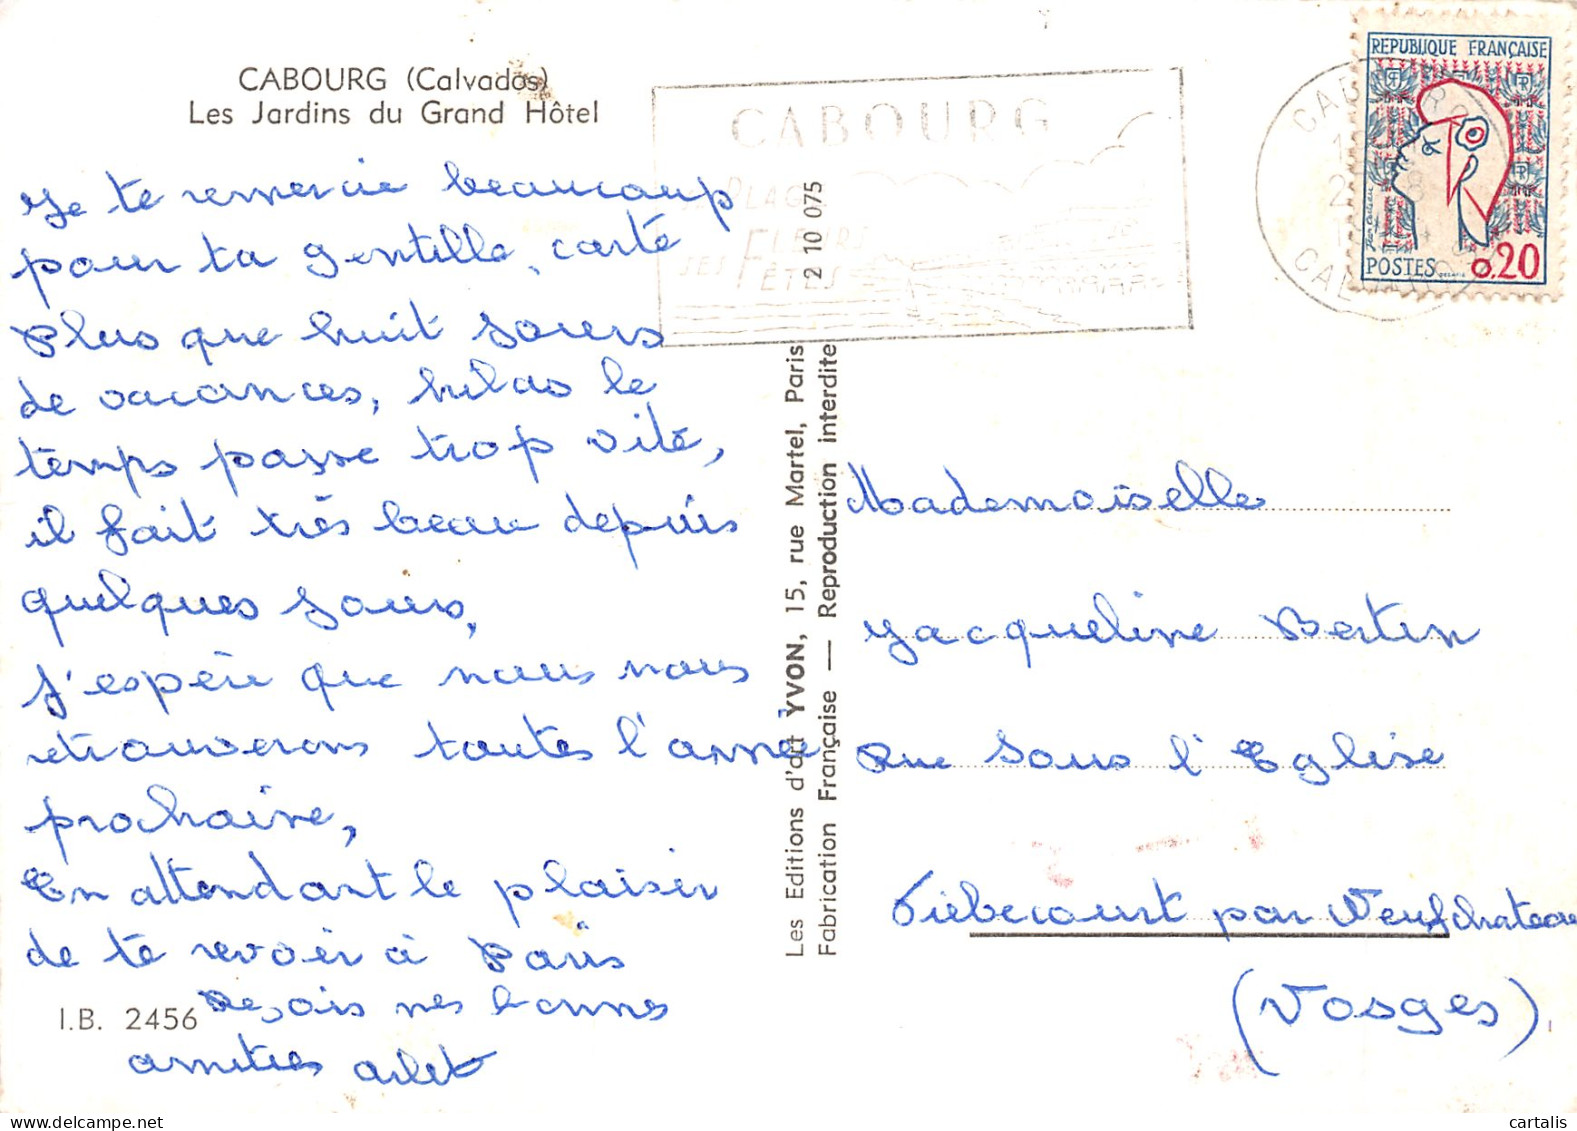 CABOURG (Calvados)
Les Jardins du Grand Hôtel
Je te remercie beaucoup
pour ta gentille carte
Plus que huit jours
de vacances, hélas le
temps passe trop vite,
il fait très beau depuis
quelques jours,
J'espère que nous nous
retrouverons toutes l'année
prochaine,
En attendant le plaisir
de te revoir à Paris
Reçois mes bonnes
amitiés Arlet
I.B. 2456
CABOURG
PLAGE
FLEURS
SES FÊTES
2 10 075
Les Editions d'art YVON, 15, rue Martel, Paris
Fabrication Française — Reproduction interdite
REPUBLIQUE FRANÇAISE
POSTES 0,20
CABOURG
CALVADOS
Mademoiselle
Jacqueline Bertin
Rue Sous l'Eglise
par Neufchateau
(Vosges)
cartalis